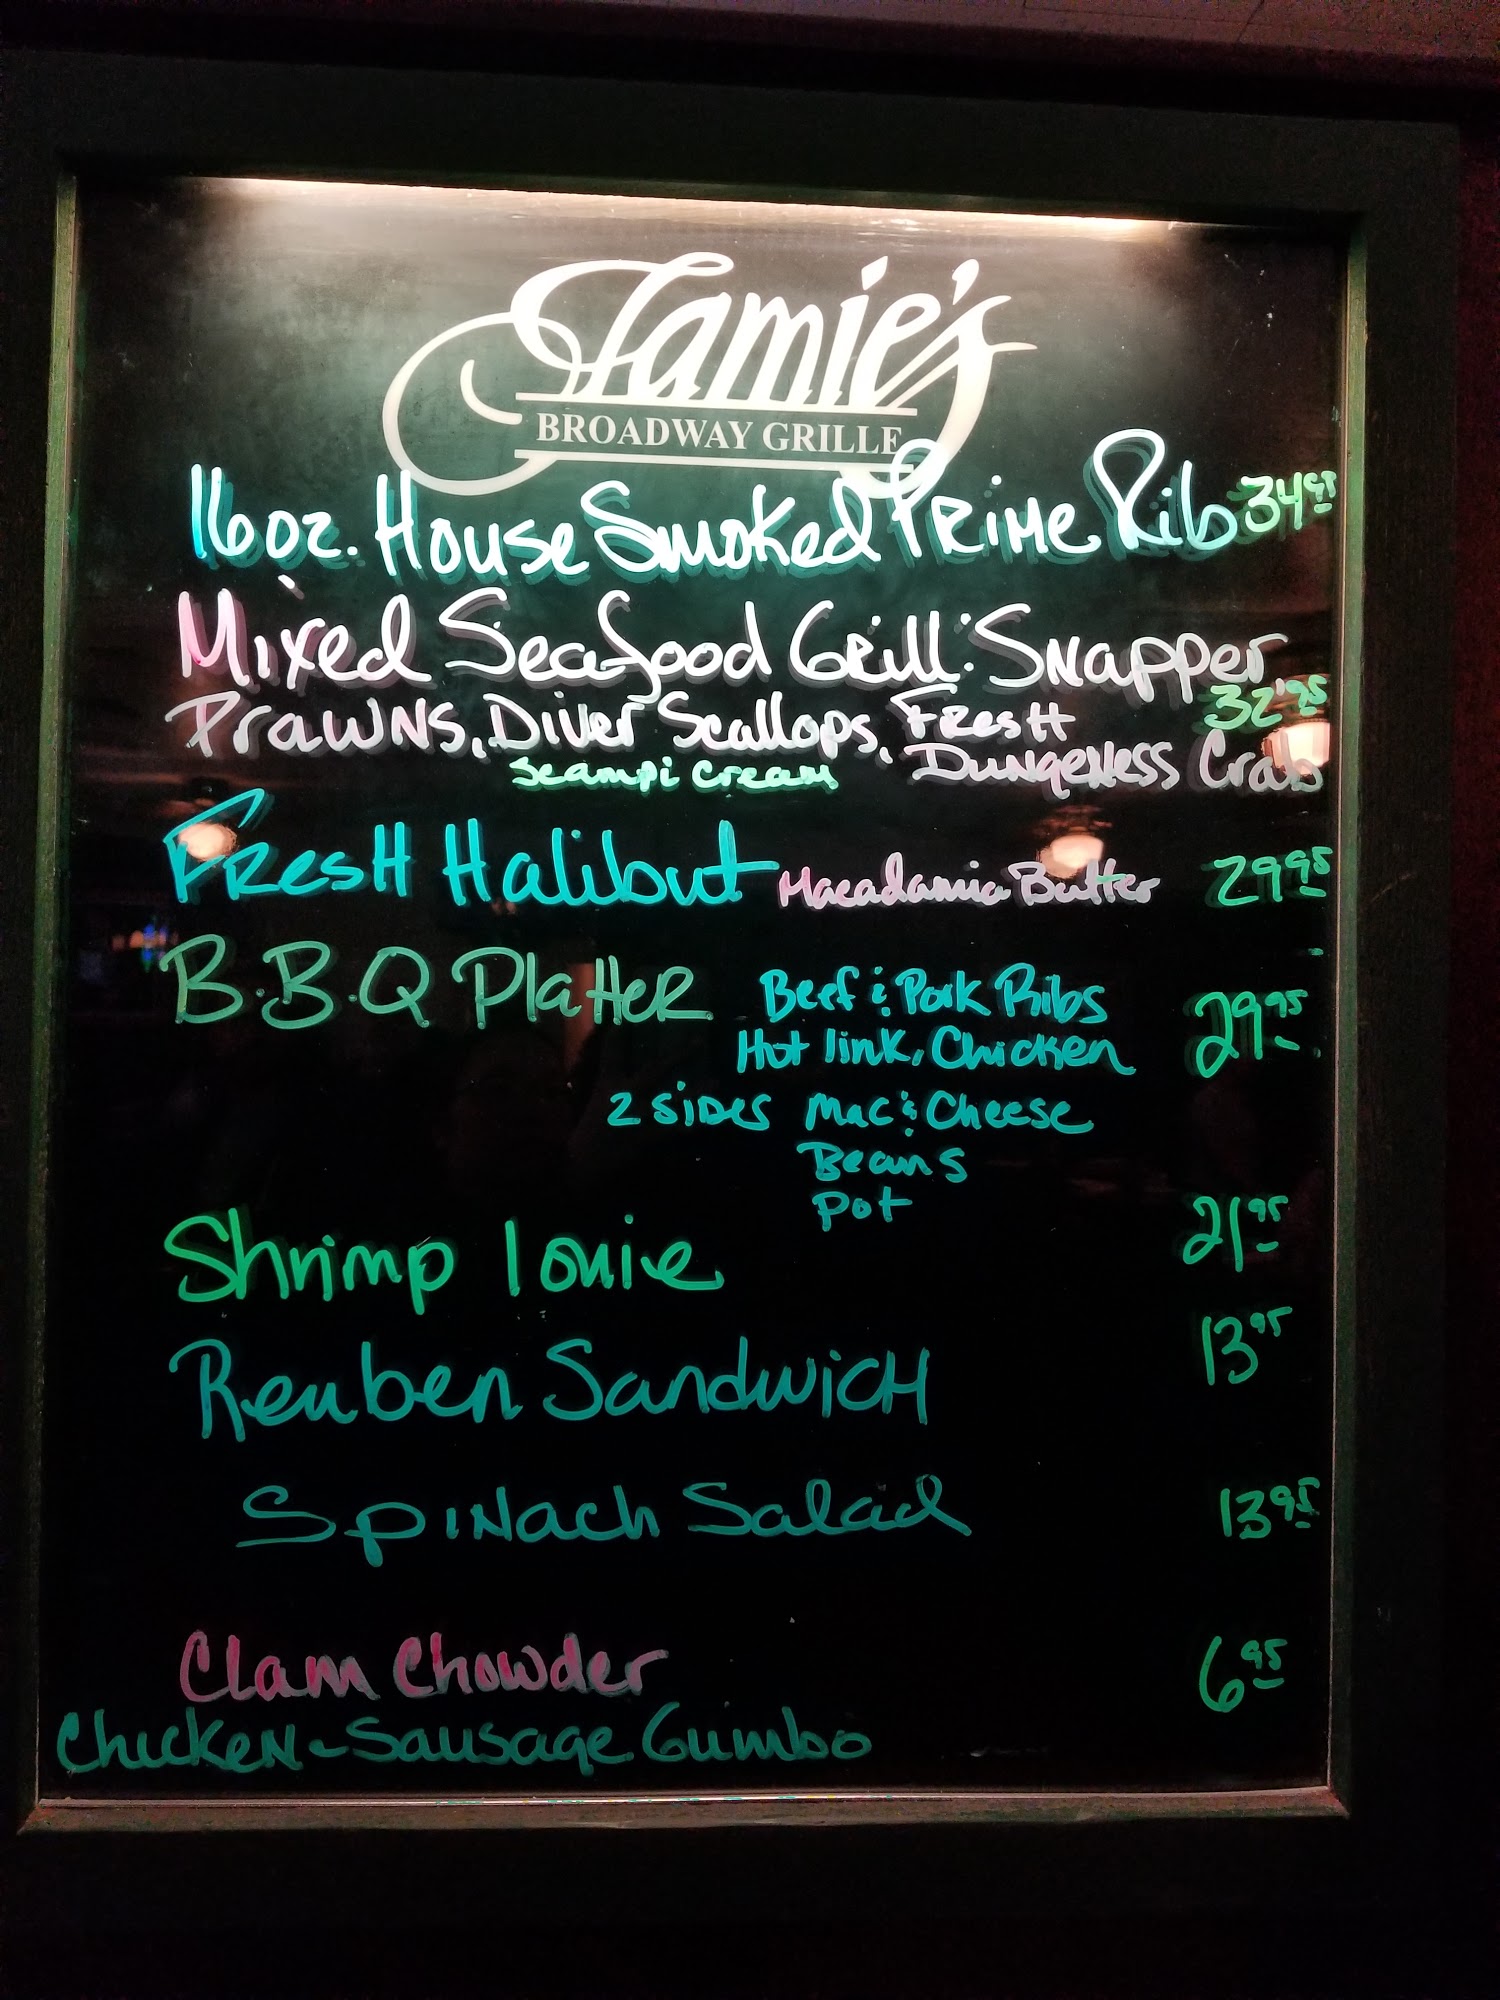 Jamie's
BROADWAY GRILLE
16 oz. House Smoked Prime Rib 34.95
Mixed Seafood Grill: Snapper
Prawns, Diver Scallops, Fresh 32.95
Scampi Cream Dungeness Crab
Fresh Halibut Macadamia Butter 29.95
B.B.Q Platter Beef & Pork Ribs
Hot link, Chicken 29.95
2 sides Mac & Cheese
Beans
Pot
Shrimp Louie 21.95
Reuben Sandwich 13.95
Spinach Salad 13.95
Clam Chowder 6.95
Chicken-Sausage Gumbo